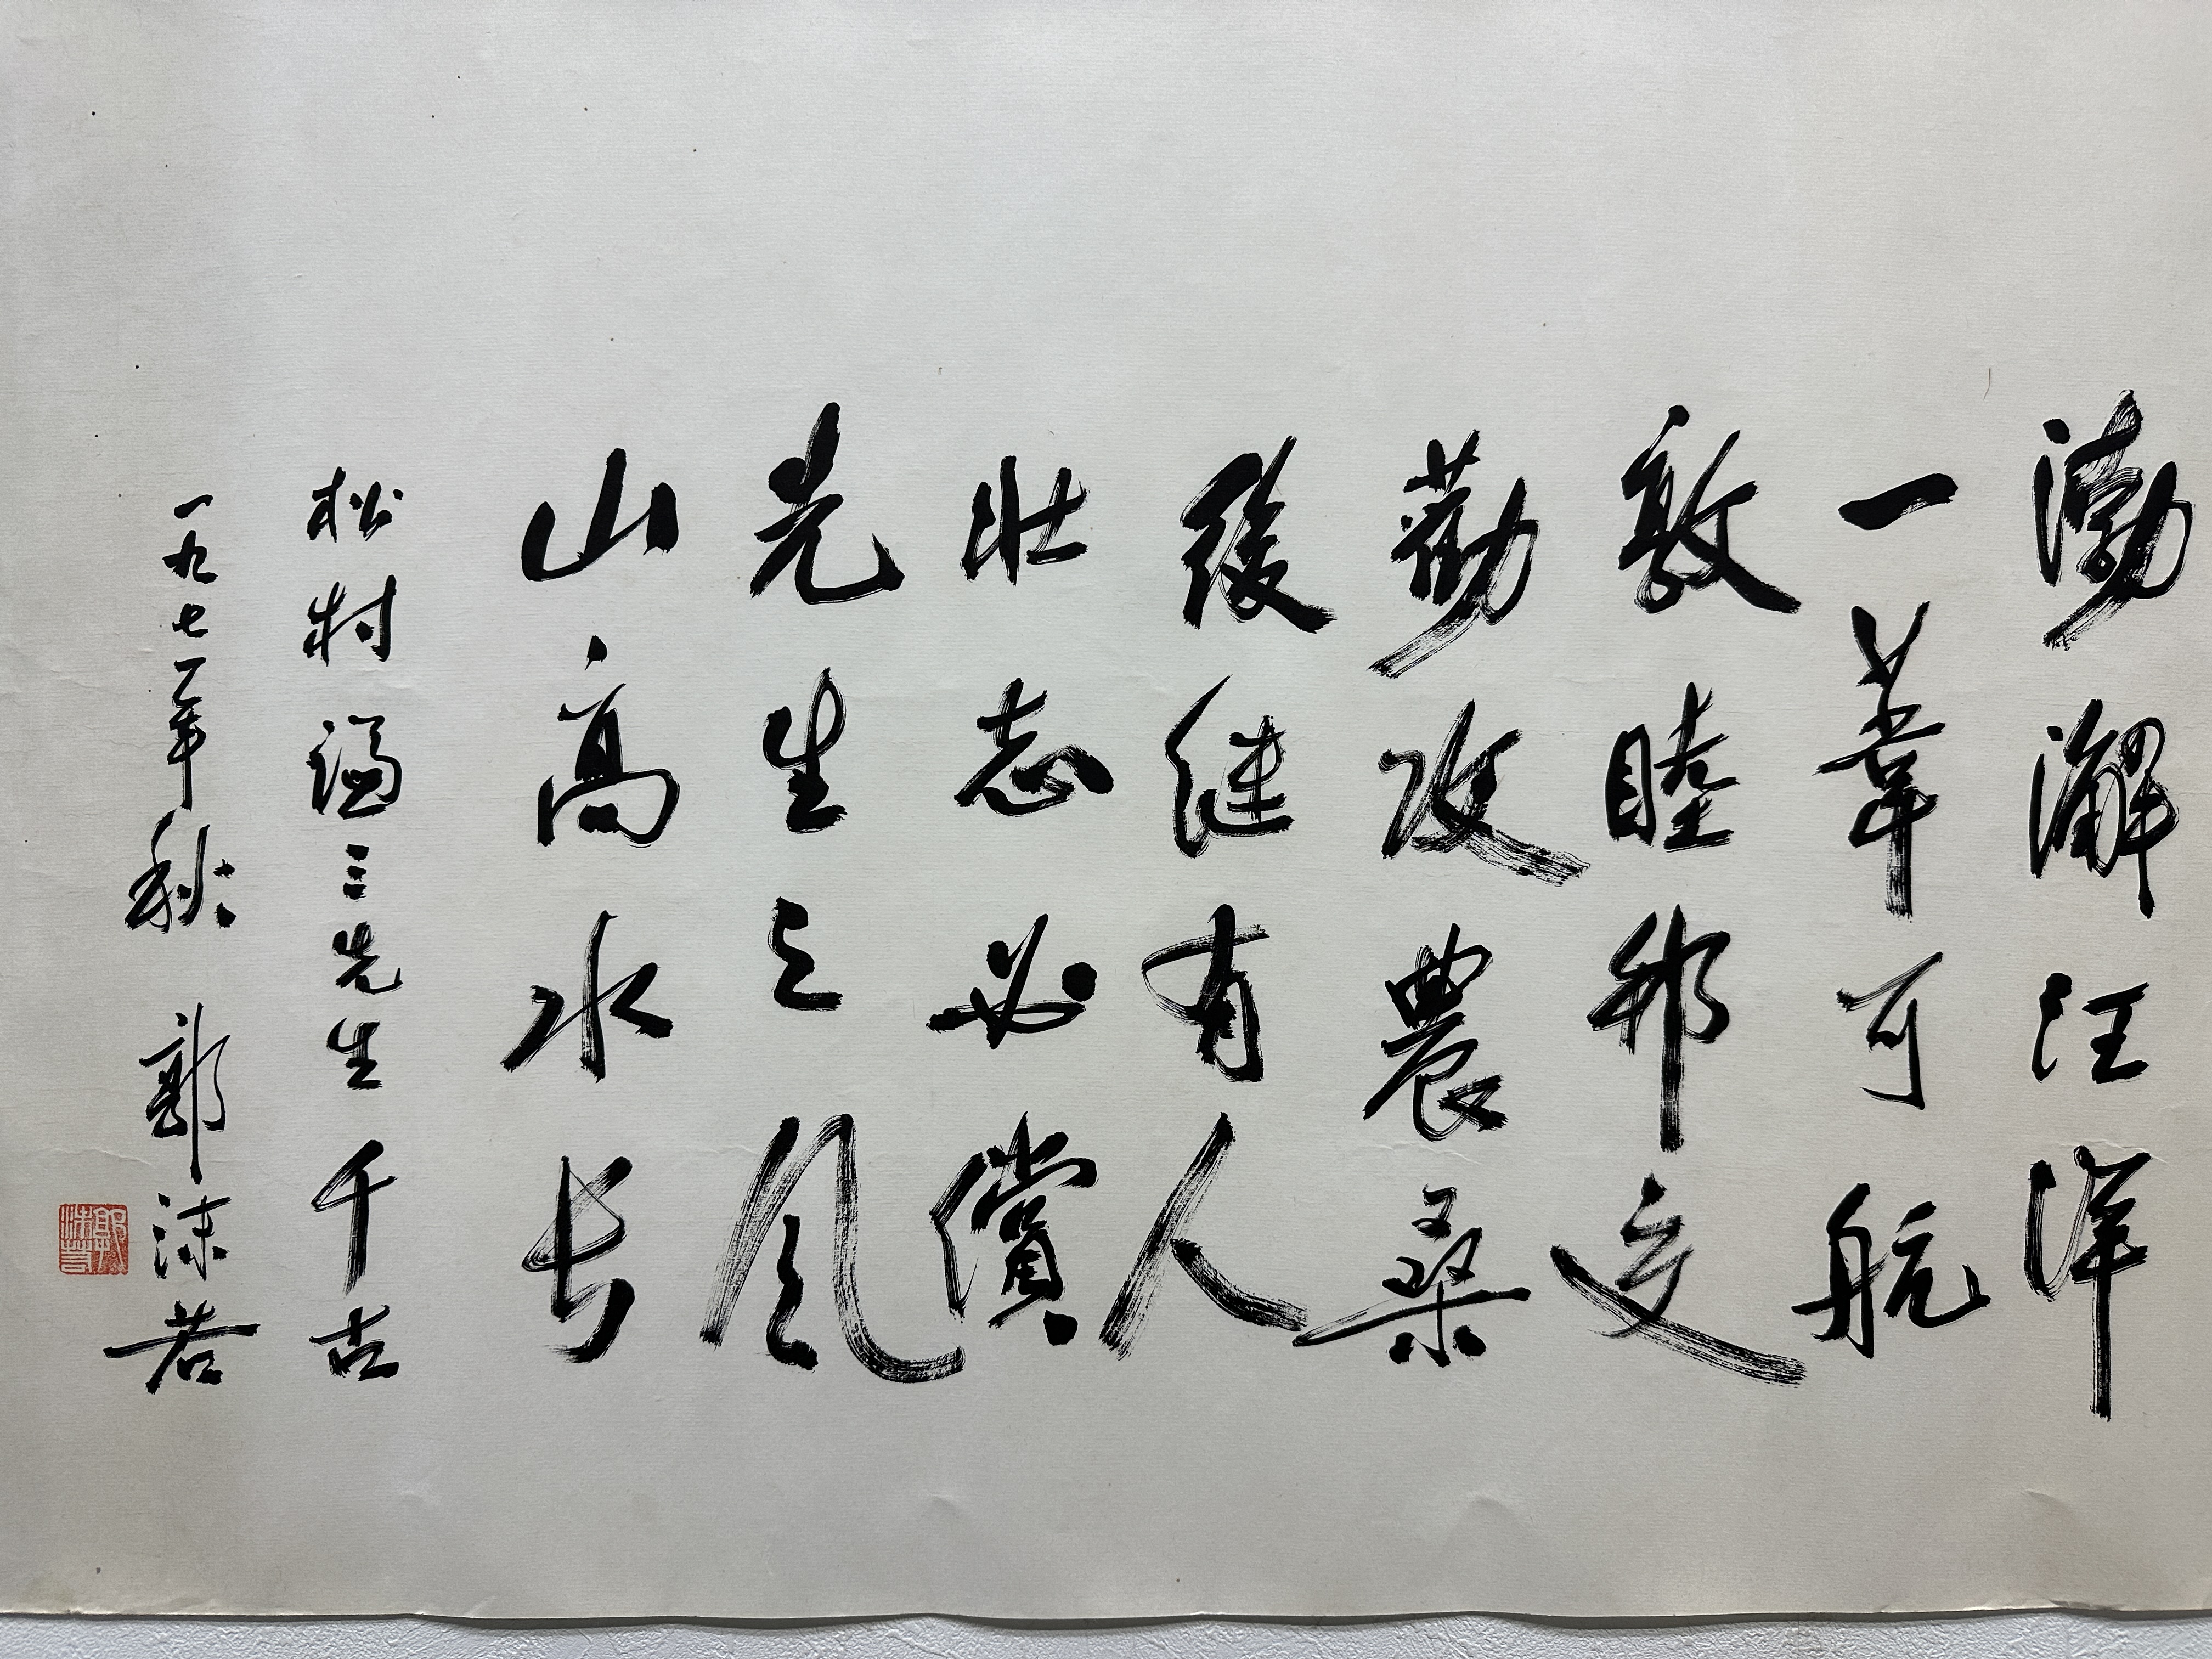 渤澥汪洋
一葦可航
敦睦邦交
勸攻農桑
後继有人
壮志必償
先生之风
山高水长
松村謙三先生千古
一九七一年秋 郭沫若
郭沫若